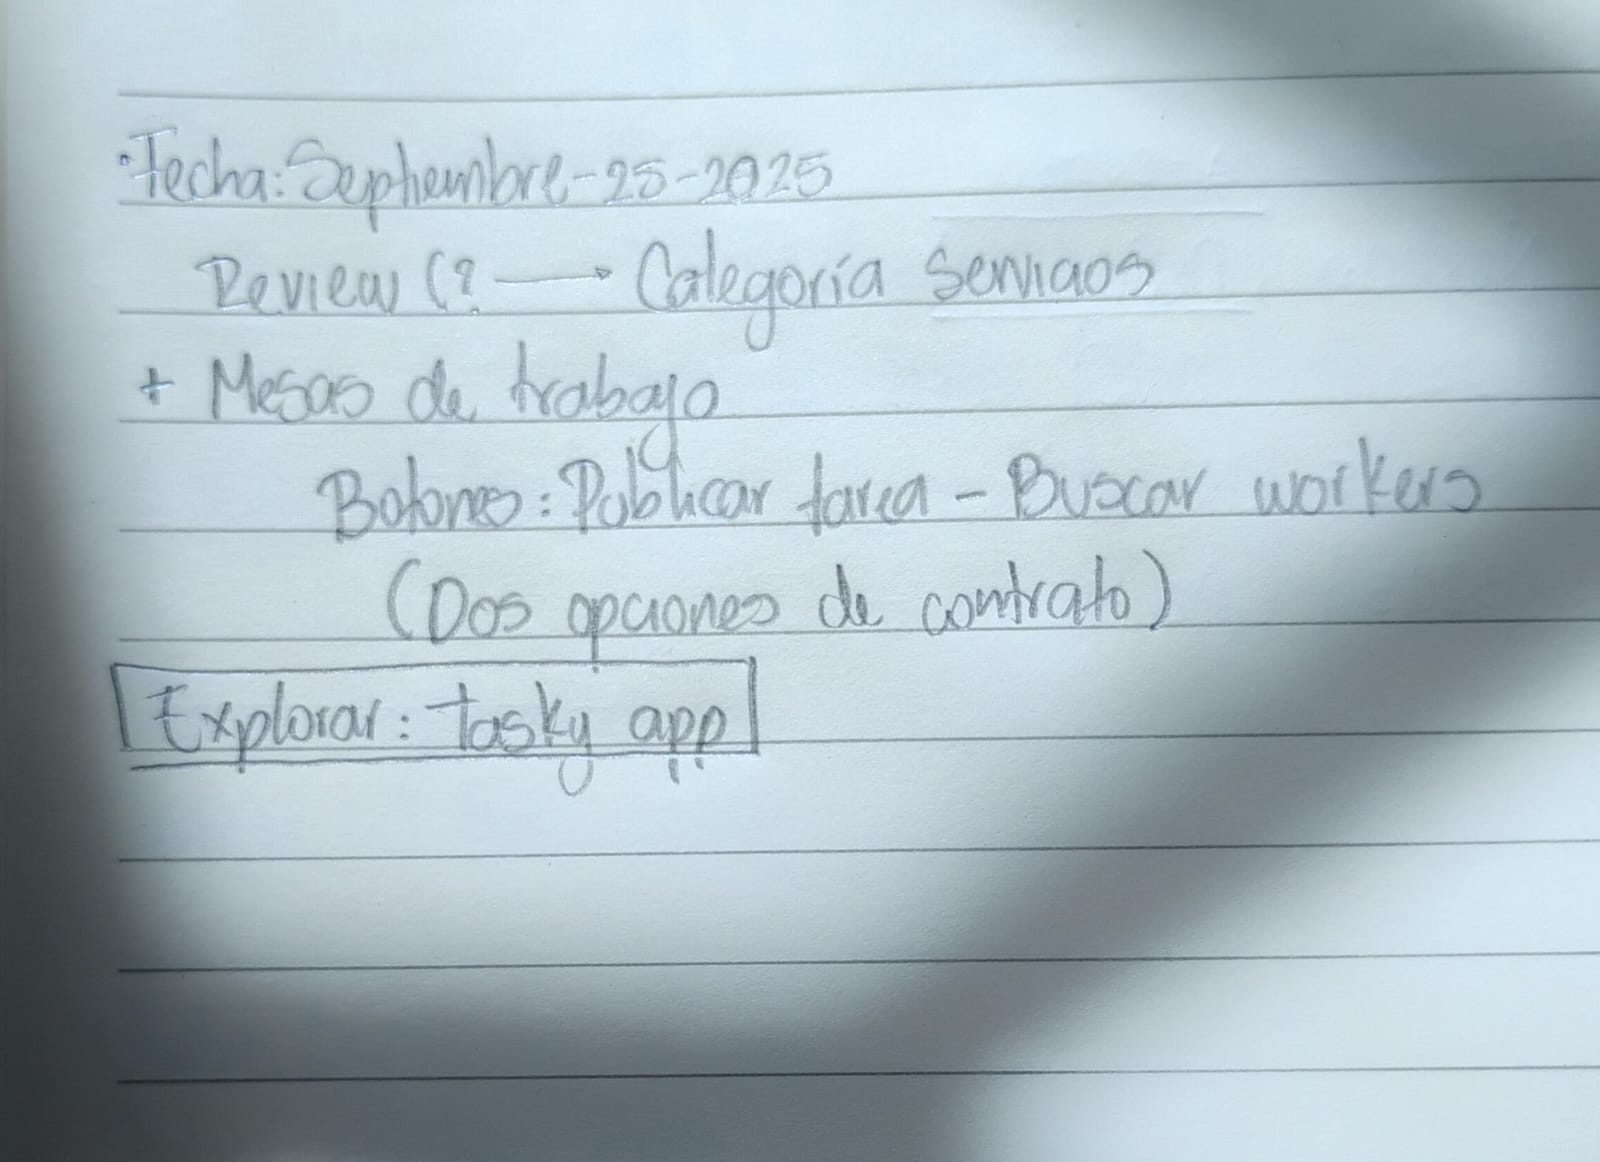 · Fecha: Septiembre-25-2025
Review (? → Categoría servicios
+ Mesas de trabajo
Botones: Publicar tarea - Buscar workers
(Dos opciones de contrato)
Explorar: tasky app